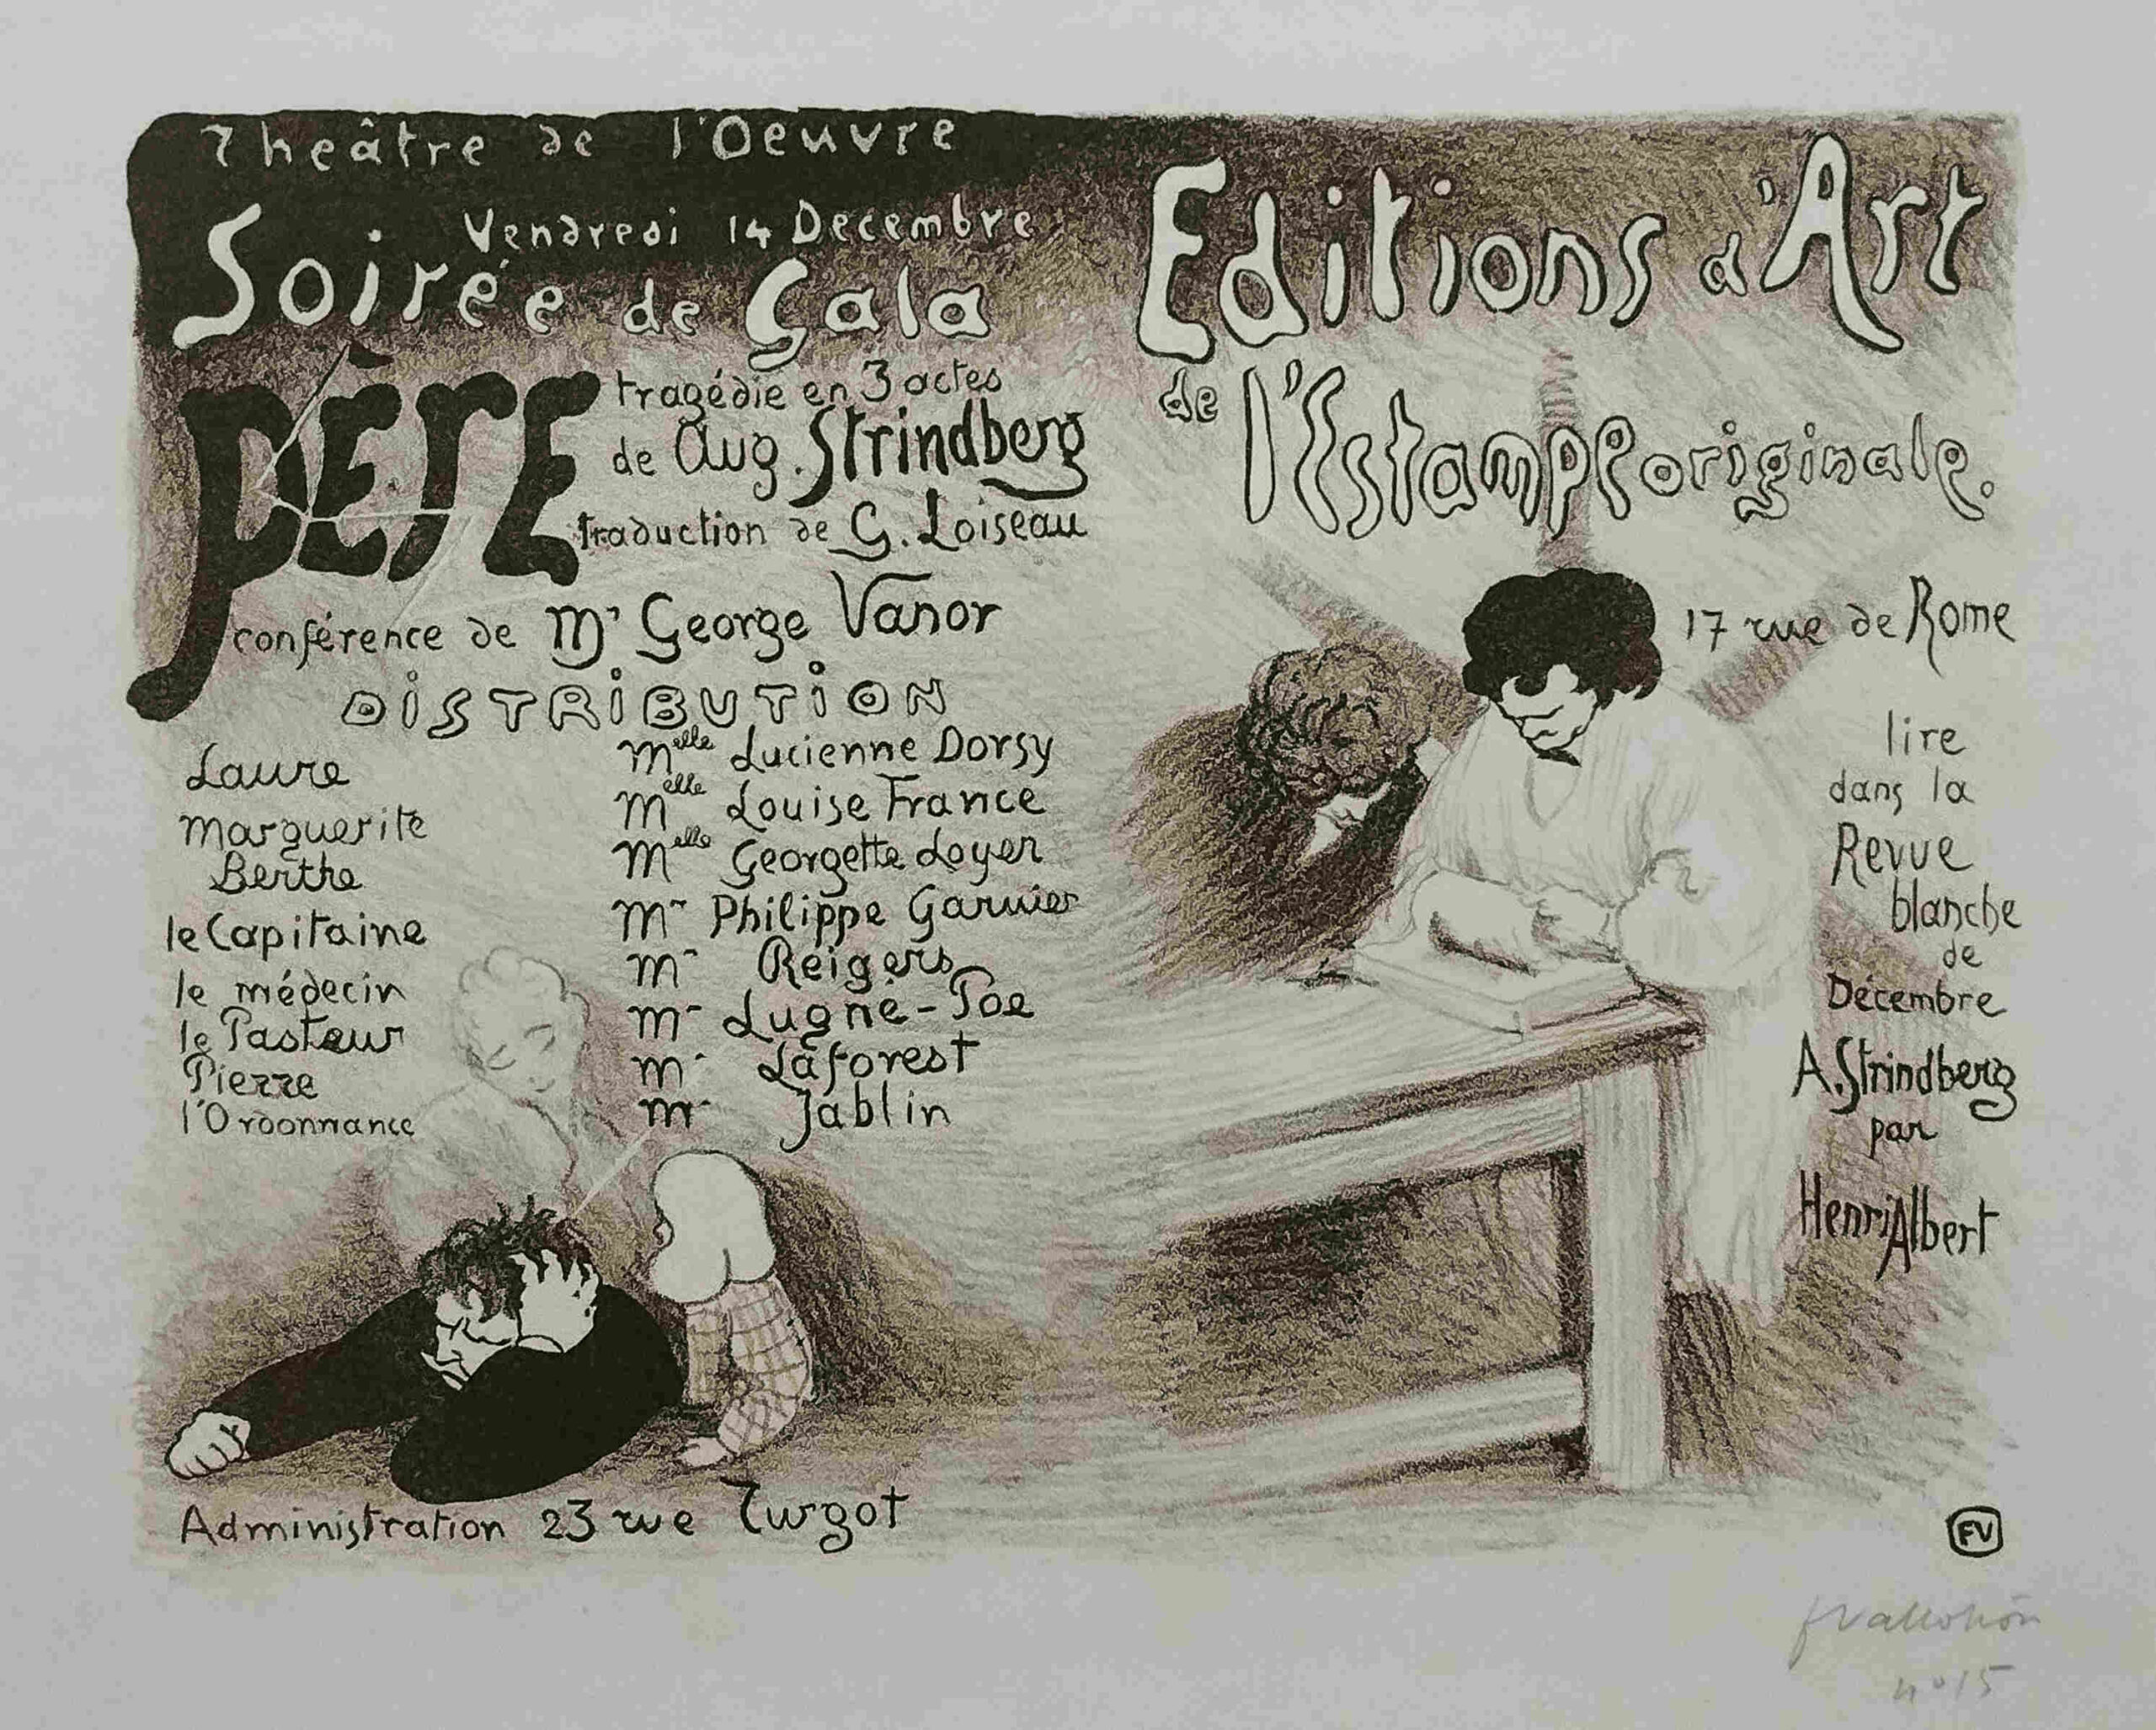 Theâtre de l'Oeuvre
Vendredi 14 Decembre
Soirée de Gala
PÈrE
tragédie en 3 actes
de Aug. Strindberg
traduction de G. Loiseau
conférence de Mr George Vanor
DiSTRiBUTiON
Laure Melle Lucienne Dorsy
Marguerite Melle Louise France
Berthe Melle Georgette Loyer
le Capitaine Mr Philippe Garnier
le médecin Mr Reigers
le Pasteur Mr Lugné-Poe
Pierre Mr Laforest
l'Ordonnance Mr Jablin
Administration 23 rue Turgot
Editions d'Art
de l'Estampe originale.
17 rue de Rome
lire
dans la
Revue
blanche
de
Décembre
A. Strindberg
par
Henri Albert
FV
fvallotton
n° 15